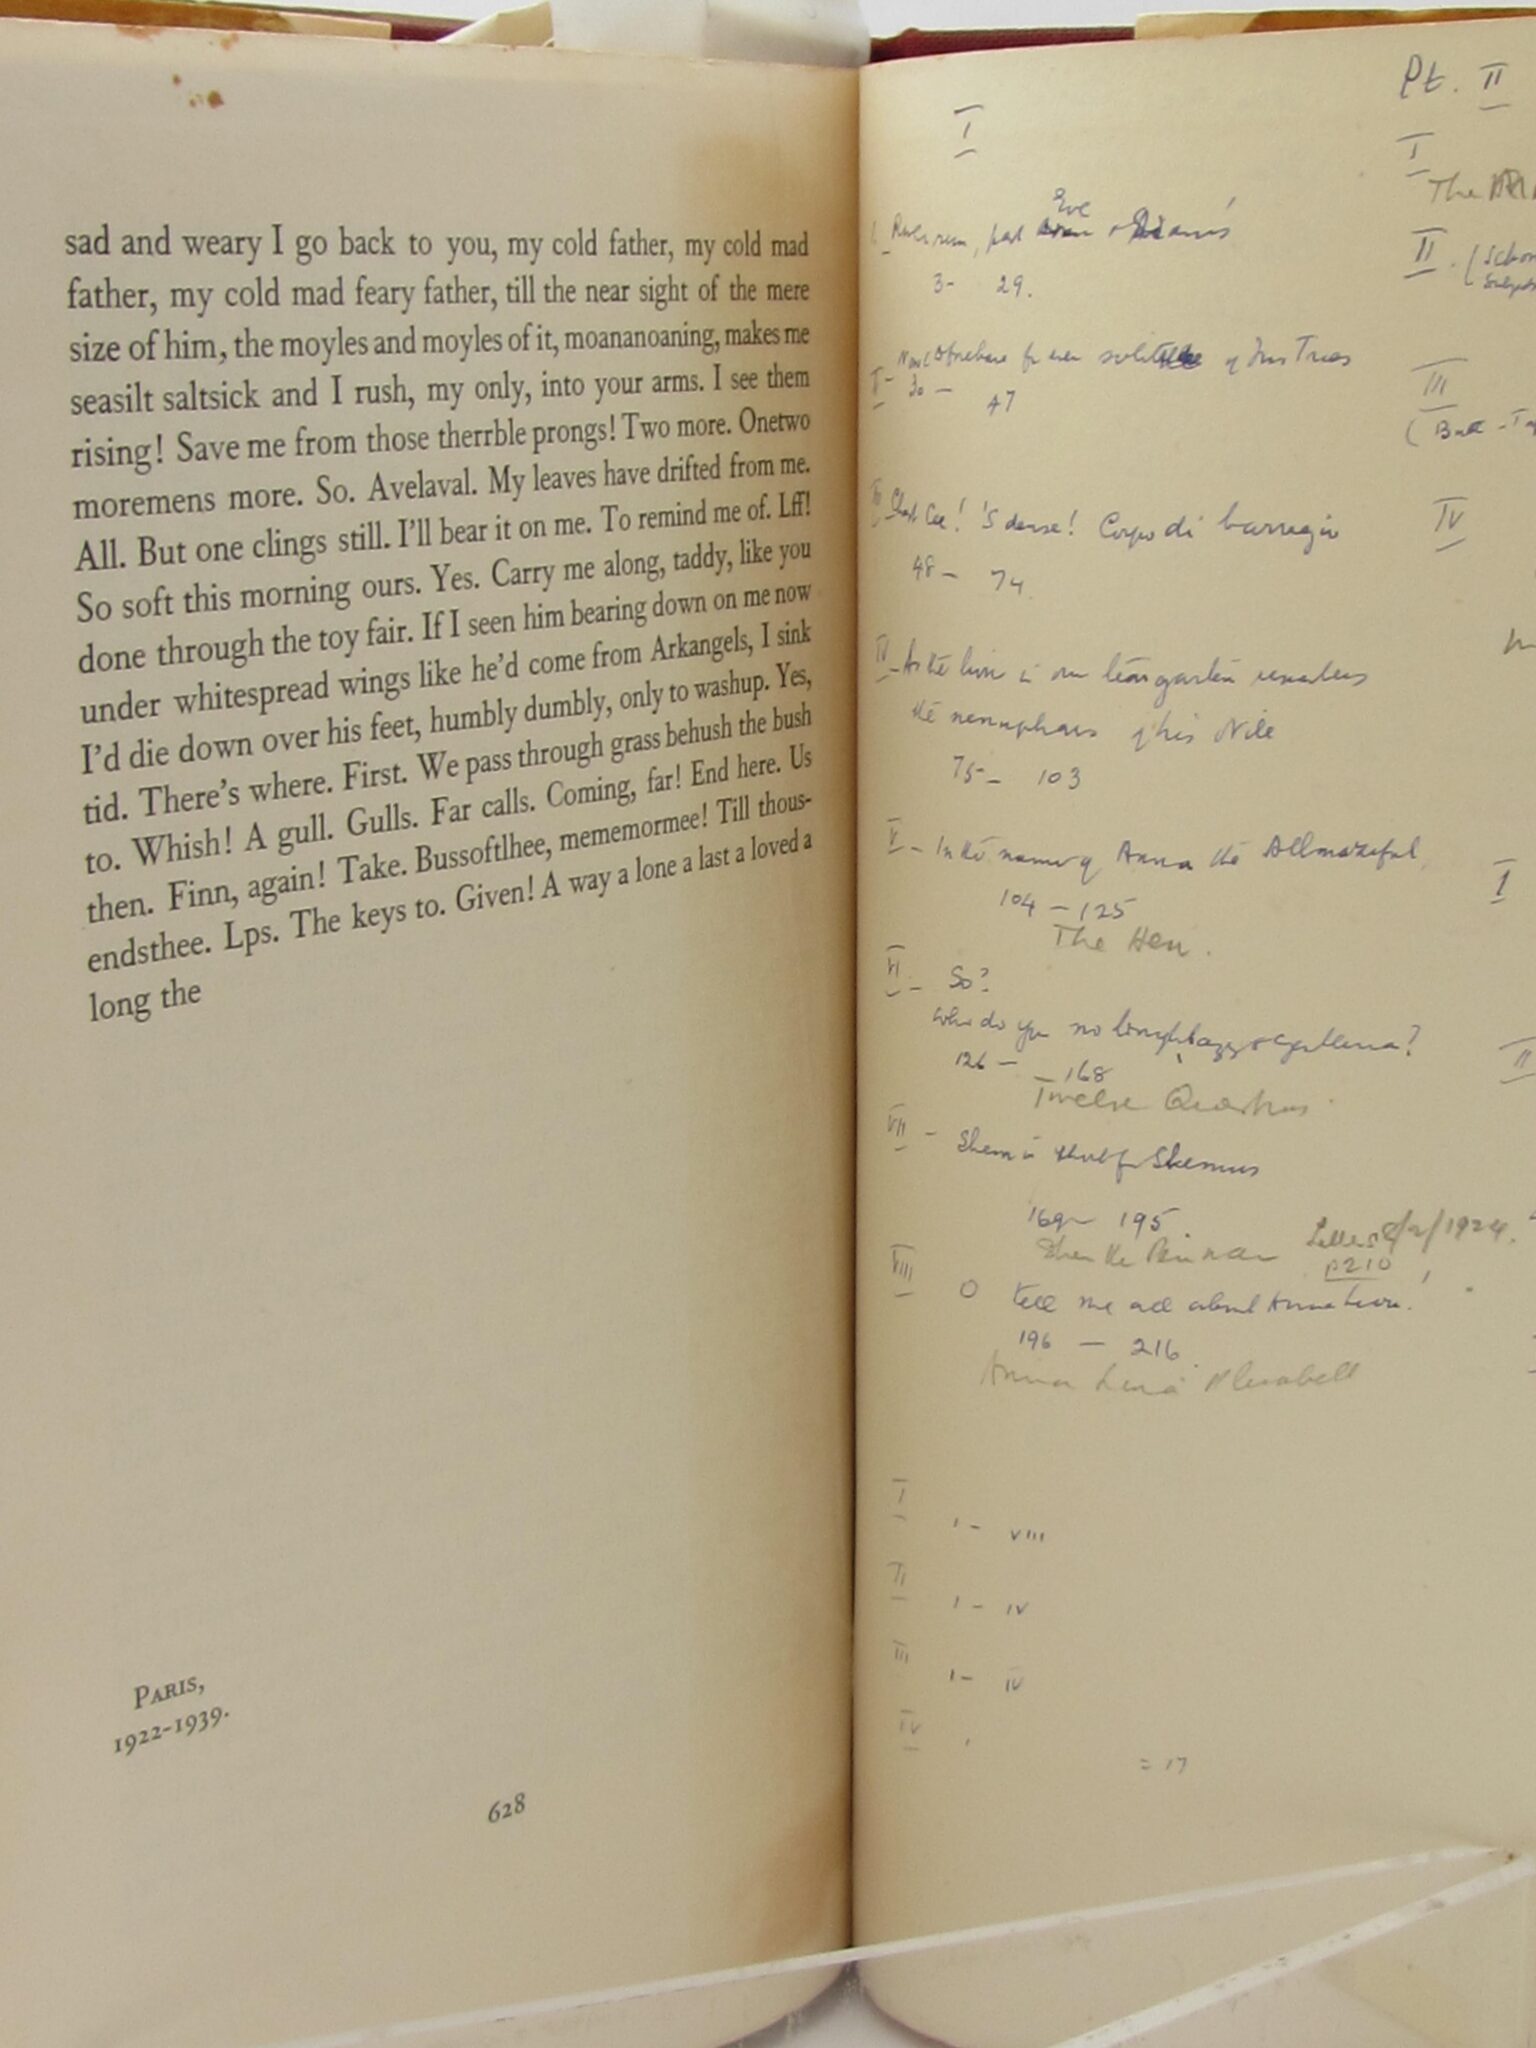 sad and weary I go back to you, my cold father, my cold mad
father, my cold mad feary father, till the near sight of the mere
size of him, the moyles and moyles of it, moananoaning, makes me
seasilt saltsick and I rush, my only, into your arms. I see them
rising! Save me from those therrble prongs! Two more. Onetwo
moremens more. So. Avelaval. My leaves have drifted from me.
All. But one clings still. I'll bear it on me. To remind me of. Lff!
So soft this morning ours. Yes. Carry me along, taddy, like you
done through the toy fair. If I seen him bearing down on me now
under whitespread wings like he'd come from Arkangels, I sink
I'd die down over his feet, humbly dumbly, only to washup. Yes,
tid. There's where. First. We pass through grass behush the bush
to. Whish! A gull. Gulls. Far calls. Coming, far! End here. Us
then. Finn, again! Take. Bussoftlhee, mememormee! Till thous-
endsthee. Lps. The keys to. Given! A way a lone a last a loved a
long the
PARIS,
1922-1939.
628
I
Eve
1 - Riverrun, past & Adam's
3 - 29.
Now of Iris Trees
30 - 47
III - Chest Cee! 'S dense! Corpo di barragio
48 - 74
IV - As the lion in our teargarten remembers
the nenuphars of his Nile
75 - 103
V - In the name of Anna the Allmaziful,
104 - 125
The Hen.
VI - So?
Who do you no
126 - 168
Twelve Questions
VII - Shem is short for Shemus
169 - 195
Shem the Penman Letters 8/2/1924.
p210
VIII O tell me all about Anna Livia!
196 - 216
Anna Livia Plurabell
I 1 - VIII
II 1 - IV
III 1 - IV
IV 1
= 17
Pt. II
I
The
II (
III
( Butt - T
IV
I
II